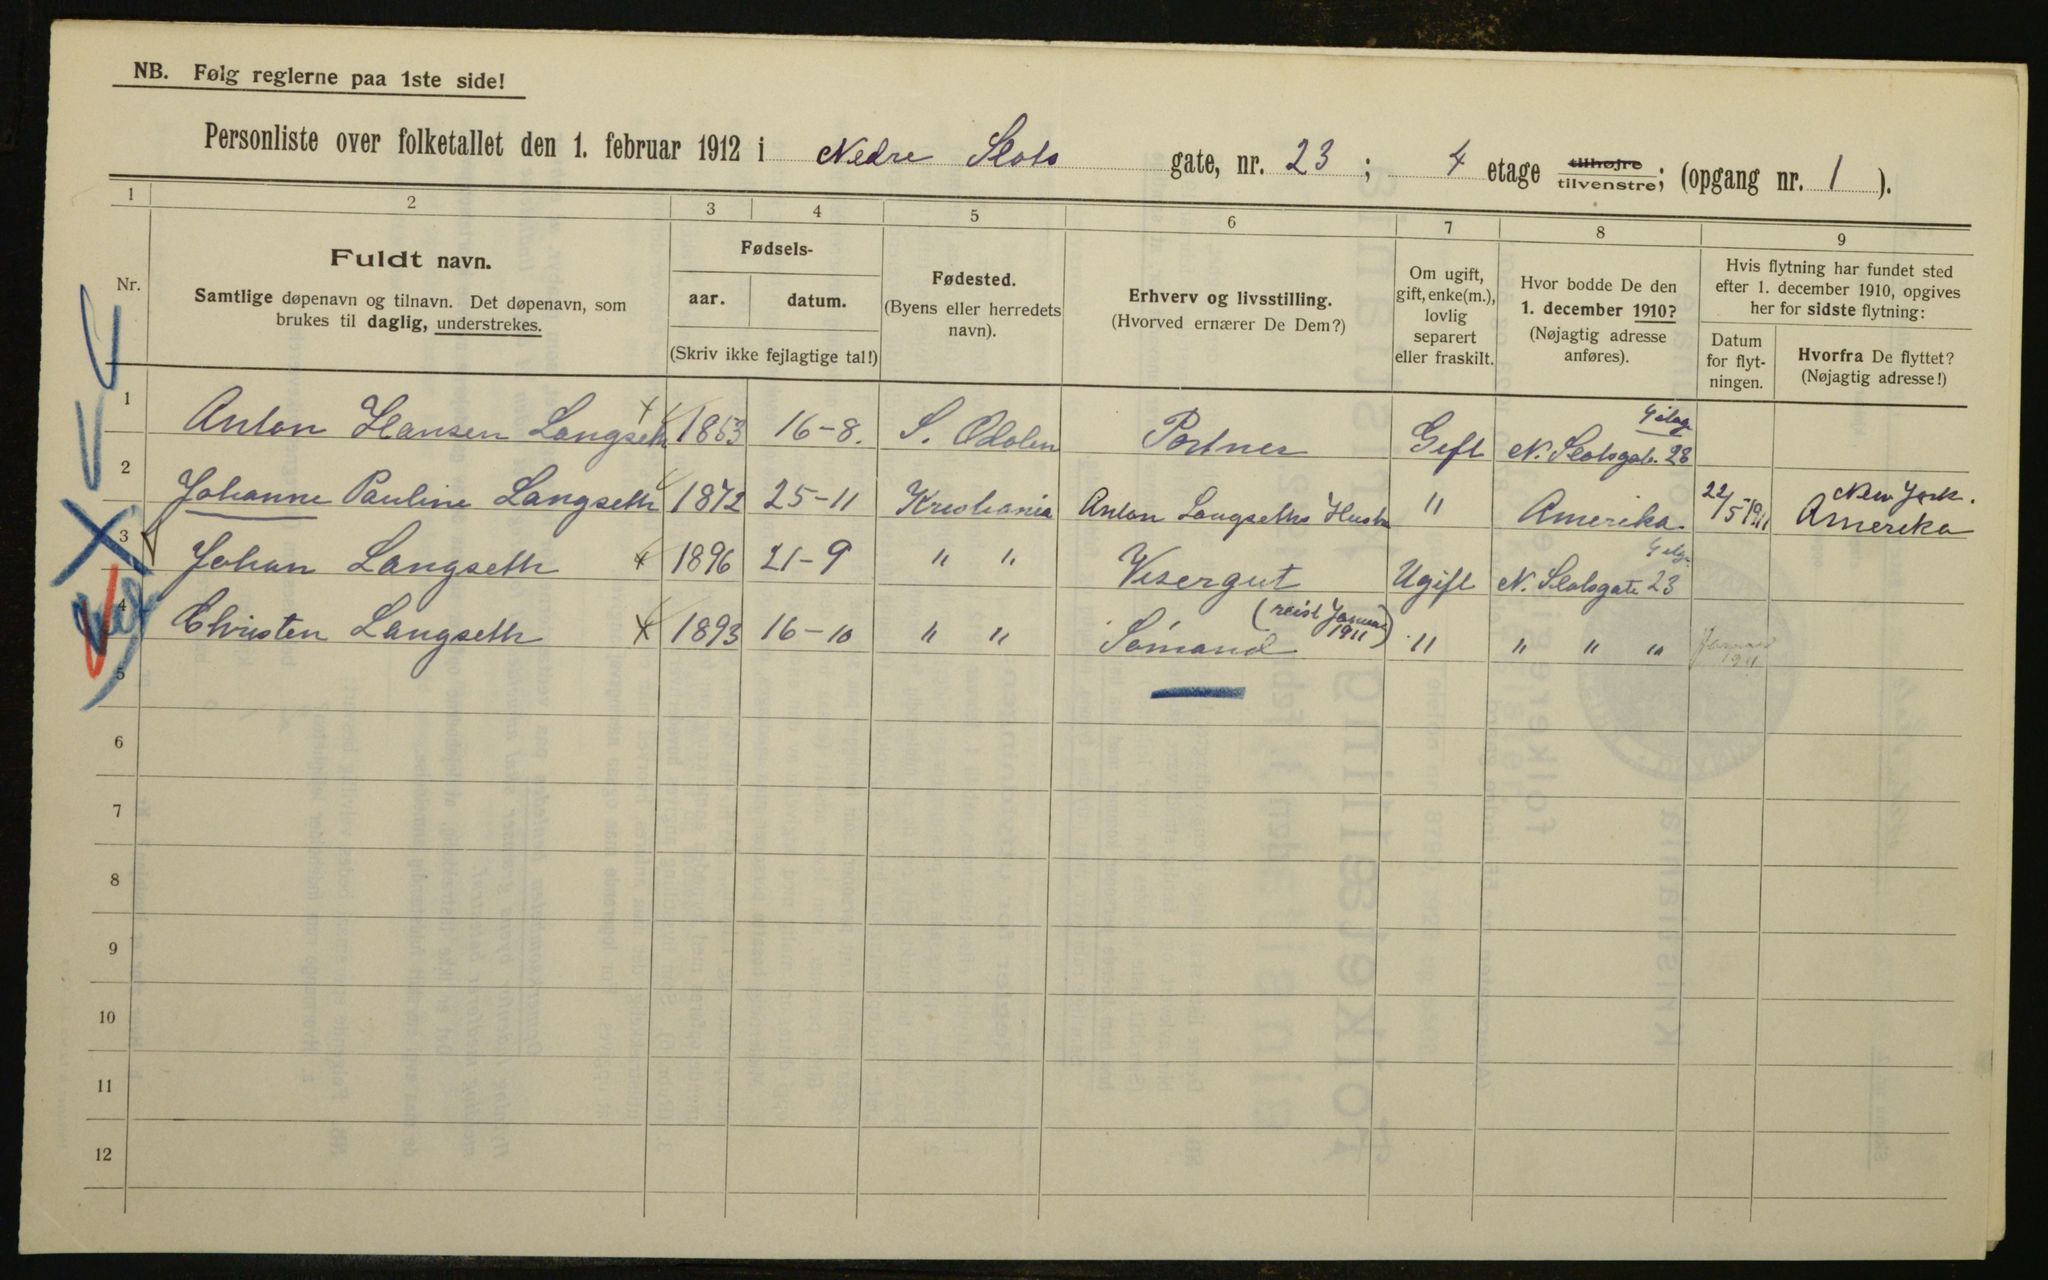 NB. Følg reglerne paa 1ste side!
Personliste over folketallet den 1. februar 1912 i Nedre Slots gate, nr. 23 ; 4 etage tilhøjre tilvenstre; (opgang nr. 1 ).
1 2 3 4 5 6 7 8 9
Nr.
Fuldt navn.
Samtlige døpenavn og tilnavn. Det døpenavn, som
brukes til daglig, understrekes.
Fødsels-
aar. datum.
(Skriv ikke fejlagtige tal!)
Fødested.
(Byens eller herredets
navn).
Erhverv og livsstilling.
(Hvorved ernærer De Dem?)
Om ugift,
gift, enke(m.),
lovlig
separert
eller fraskilt.
Hvor bodde De den
1. december 1910?
(Nøjagtig adresse
anføres).
Hvis flytning har fundet sted
efter 1. december 1910, opgives
her for sidste flytning:
Datum
for flyt-
ningen.
Hvorfra De flyttet?
(Nøjagtig adresse!)
1 Anton Hansen Langseth 1863 16-8. S. Odalen Portner Gift N. Slotsgate 23
2 Johanne Pauline Langseth 1872 25-11 Kristiania Anton Langseths Hustru " Amerika. 22/5 1911 New York. Amerika
3 Johan Langseth 1896 21-9 " " Visergut Ugift N. Slotsgate 23
4 Christen Langseth 1893 16-10 " " Sømand (reist Januar 1911) " " " " Januar 1911
5
6
7
8
9
10
11
12